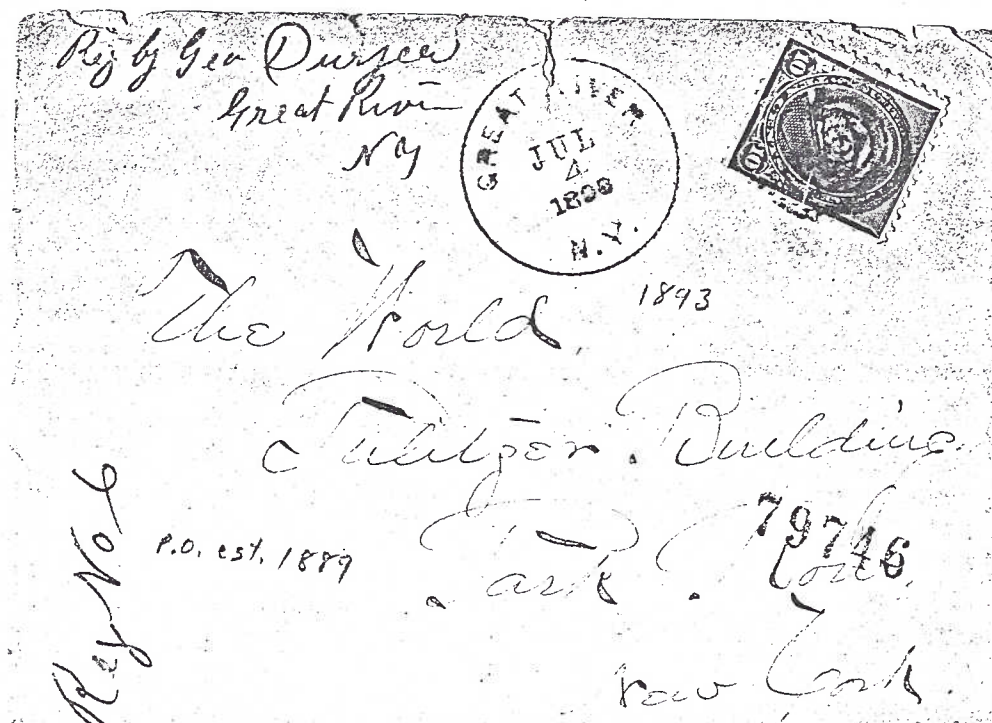 Reg by Geo Duryea
Great River
NY
GREAT RIVER
JUL
4
N.Y.
10
10
1893
The World
Pulitzer Building
79746
Park Row
New York
P.O. est. 1889
Reg No. 6